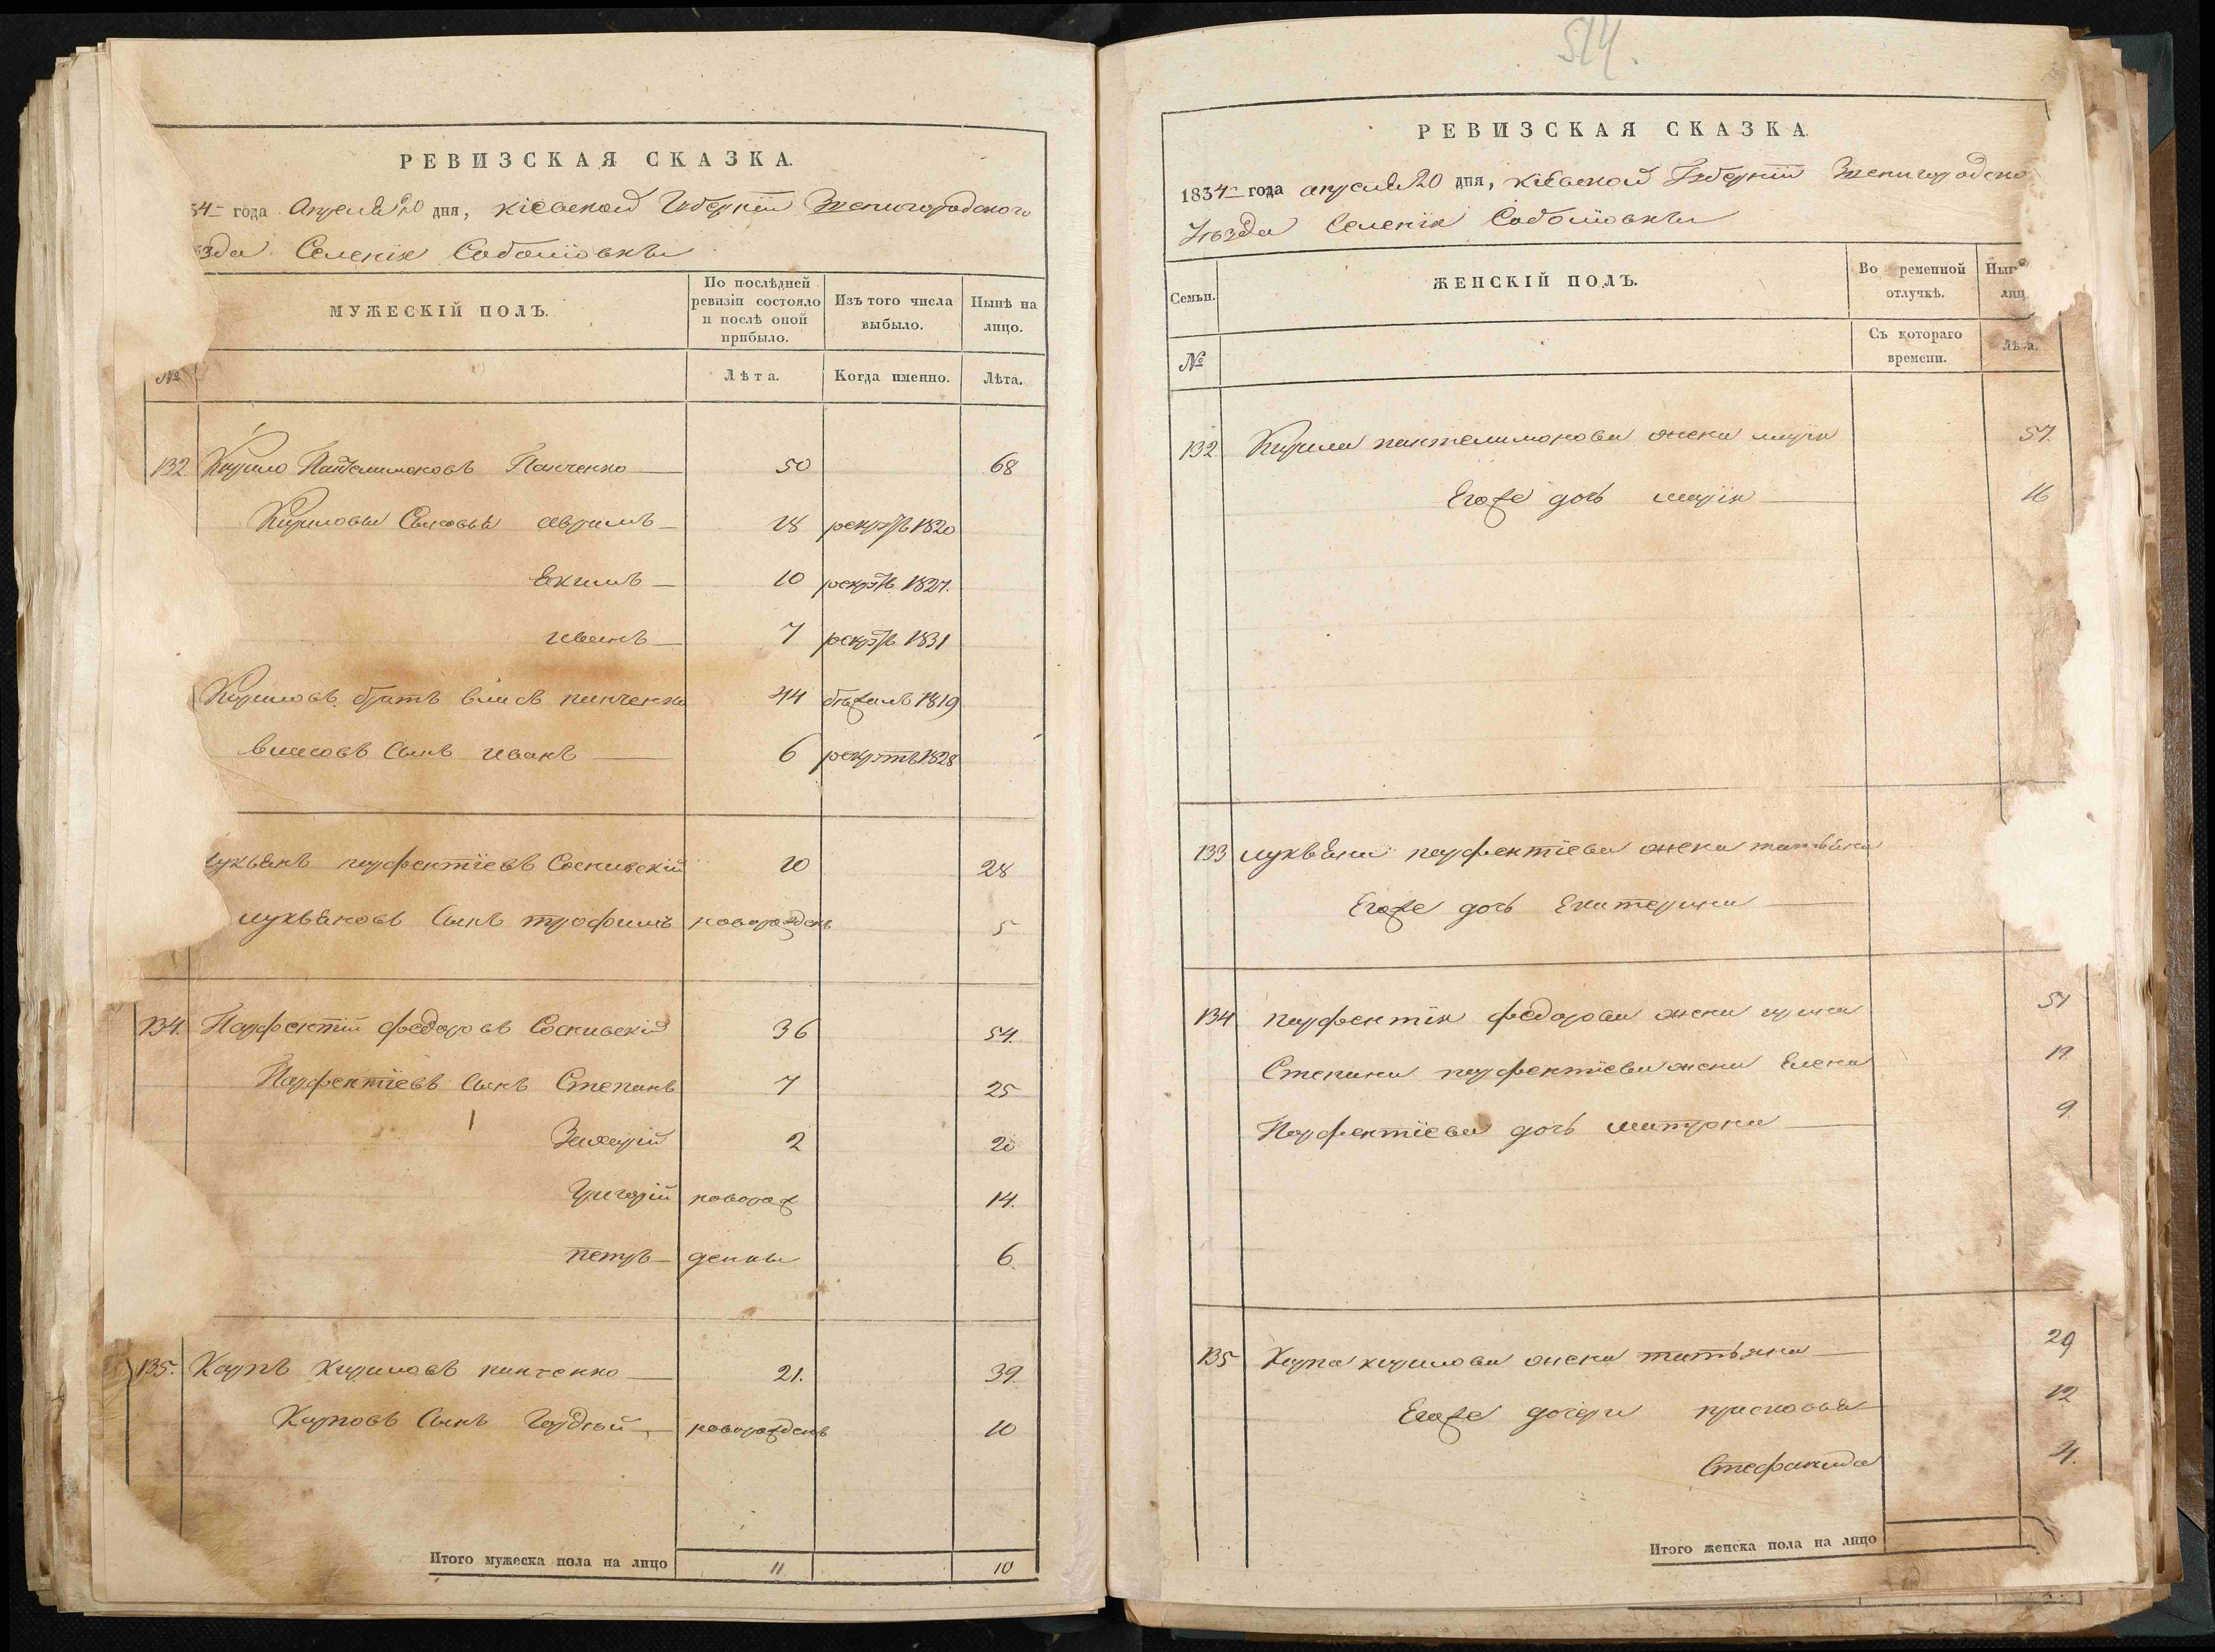 РЕВИЗСКАЯ СКАЗКА.
34 года Апреля 20 дня, Кіевской Губерніи Звенигородского
Селенія Соболіовкы
МУЖЕСКІЙ ПОЛЪ.
По послѣдней ревизіи состояло и послѣ оной прибыло.
Изъ того числа выбыло.
Нынѣ на лицо.
№
Лѣта.
Когда именно.
Лѣта.
132 Кирило Пантелимоновъ Панченко 50 68
Кириловы Сыновья аврамъ 18 рекрутъ 1820
Екимъ 10 рекрутъ 1827.
иванъ 7 рекрутъ 1831
Кириловъ братъ власъ панченко 44 бѣжалъ 1819
власовъ Сынъ иванъ 6 рекрутъ 1828
парфентіевъ Соснивскій 10 28
лукьяновъ Сынъ трофимъ новорожденъ 5
134. Парфентій федоровъ Соснивскій 36 54.
Парфентіевъ Сынъ Степанъ 7 25
Захарій 2 20
Григорій новорож 14.
петръ денны 6.
135. Карпъ Кириловъ панченко 21. 39.
Карповъ Сынъ Гордѣй новорожденъ 10
Итого мужеска пола на лицо 11 10
514.
РЕВИЗСКАЯ СКАЗКА.
1834 года апреля 20 дня, Кіевской Губерніи Звенигородско
Уѣзда Селенія Соболіовкы
Семьи.
ЖЕНСКІЙ ПОЛЪ.
Во временной отлучкѣ.
№
Съ котораго времени.
Лѣта.
132. Кирила пантелимонова жена марія 57.
Егоже дочь марія 16
133 лукьяна парфентіева жена татьяна
Егоже дочь Екатерина
134 парфентія федорова жена ирина 51
Степана парфентіева жена Елена 19
Парфентіева дочь матрона 9.
135 Карпа кирилова жена татьяна 29
Егоже дочери прасковья 12
Стефанида 4.
Итого женска пола на лицо